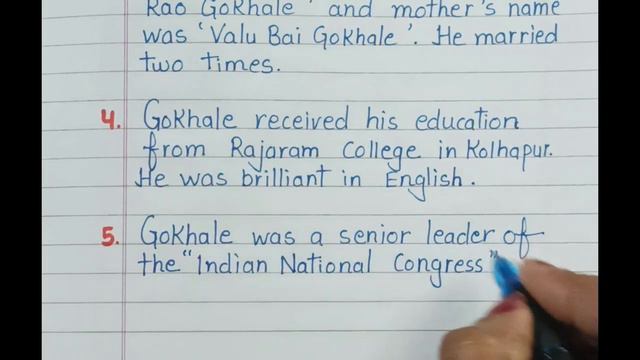 Rao Gokhale' and mother's name
was 'Valu Bai Gokhale'. He married
two times.
4. Gokhale received his education
from Rajaram College in Kolhapur.
He was brilliant in English.
5. Gokhale was a senior leader of
the "Indian National Congress"